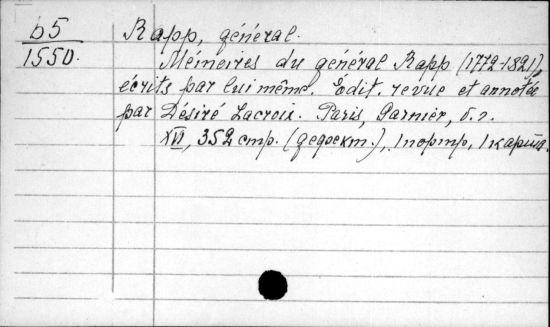 b5
1550.
Rapp, général.
Mémoires du général Rapp (1772-1821),
écrits par lui même. Édit. revue et annotée
par Désiré Lacroix. Paris, Garnier, б. г.
XVI, 352 стр. (дефект.), 1 портр, 1 карта.